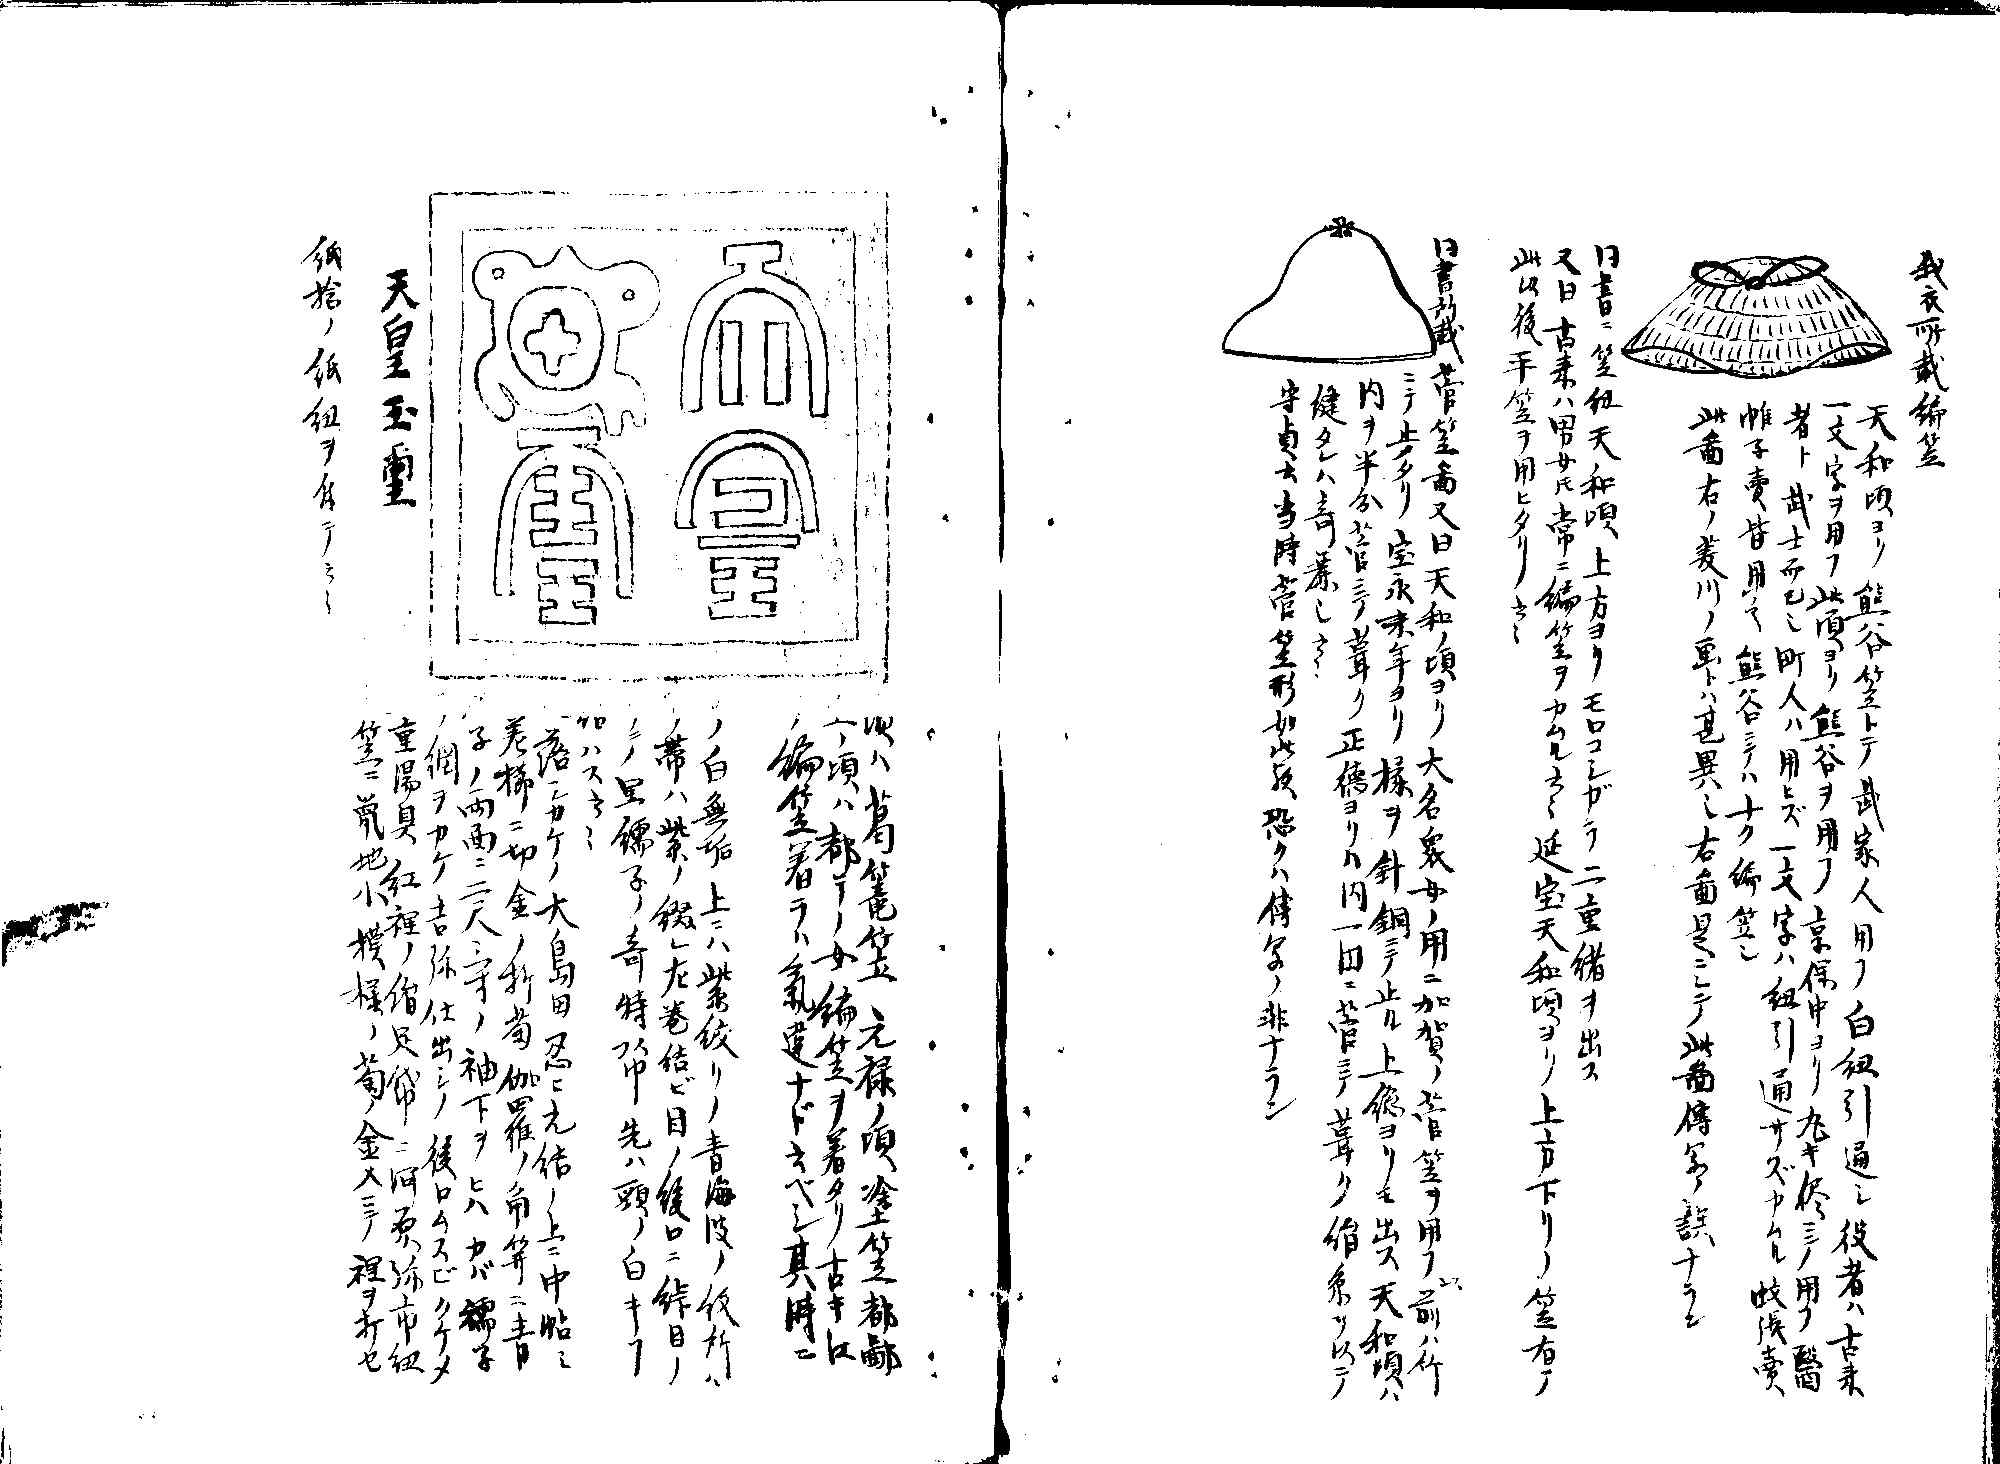 我衣所載編笠
天和頃ヨリ熊谷笠トテ武家人用フ白紐引通シ役者ハ古来
一文字ヲ用フ此頃ヨリ熊谷ヲ用フ享保中ヨリ丸キ終ニノ用フ醫
者ト武士而已也町人ハ用ヒズ一文字ハ紐引通サズカムル蚊張賣
帷子賣皆用之熊谷ニテハナク編笠也
此畵右ノ菱川ノ畫トハ甚異也右畵是ニシテ此畵傳写ノ誤ナラン
同書ニ笠紐天和頃上方ヨリモロコシガラ二重緒ヲ出ス
又曰古来ハ男女トモ常ニ編笠ヲカムル云々延宝天和頃ヨリ上方下リノ笠有テ
此以後平笠ヲ用ヒタリ云々
同書所載菅笠畵又曰天和ノ頃ヨリ大名衆女ノ用ニ加賀ノ菅笠ヲ用フ以前ハ竹
ニテ止タリ宝永末年ヨリ様ヲ針銅ニテ止ル上徳ヨリモ出ス天和頃ハ
内ヲ半分菅ニテ葺ク正徳ヨリハ内一面ニ菅ニテ葺ク絹糸ヲ以テ
健タルハ奇麗也云々
守貞云当時菅笠形如此扱恐クハ傳写ノ非ナラン
頃ハ葛篭笠元禄ノ頃塗笠都鄙
ノ頃ハ都テノ女編笠ヲ着タリ古キハ
ノ編笠着ラハ氣違ナド云ベシ其時ニ
ノ白無垢上ニハ紫絞リノ青海波ノ仮所ハ
ノ帯ハ紫ノ綴シ左巻結ビ目ノ後ロニ絆目ノ
ニノ黒繻子ノ奇特頭巾先ハ頭ノ白キヲ
加ハス云々
落シカケノ大島田忍ビ元結ノ上ニ中帖ミ
差櫛ニ切金ノ折菊伽羅ノ角笄ニ青
子ノ両面ニ二尺三寸ノ袖下ヲヒハカバ繻子
ノ網ヲカケ吉弥仕出シノ後ロムスビクケメ
重陽貝紅裡ノ絹足袋ニ河原弥市紐
笠ニ蔦地小模様ノ菊ノ金入ニテ裡ヲ打セ
天皇玉璽
天皇玉璽
紙捻ノ紙紐ヲ付ニテ云々